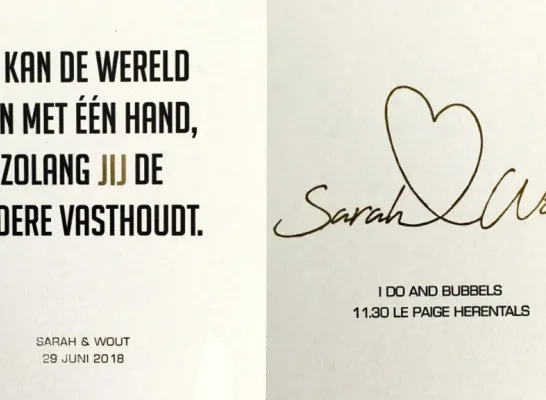 KAN DE WERELD
N MET ÉÉN HAND,
ZOLANG JIJ DE
DERE VASTHOUDT.
SARAH & WOUT
29 JUNI 2018
Sarah Wo
I DO AND BUBBELS
11.30 LE PAIGE HERENTALS